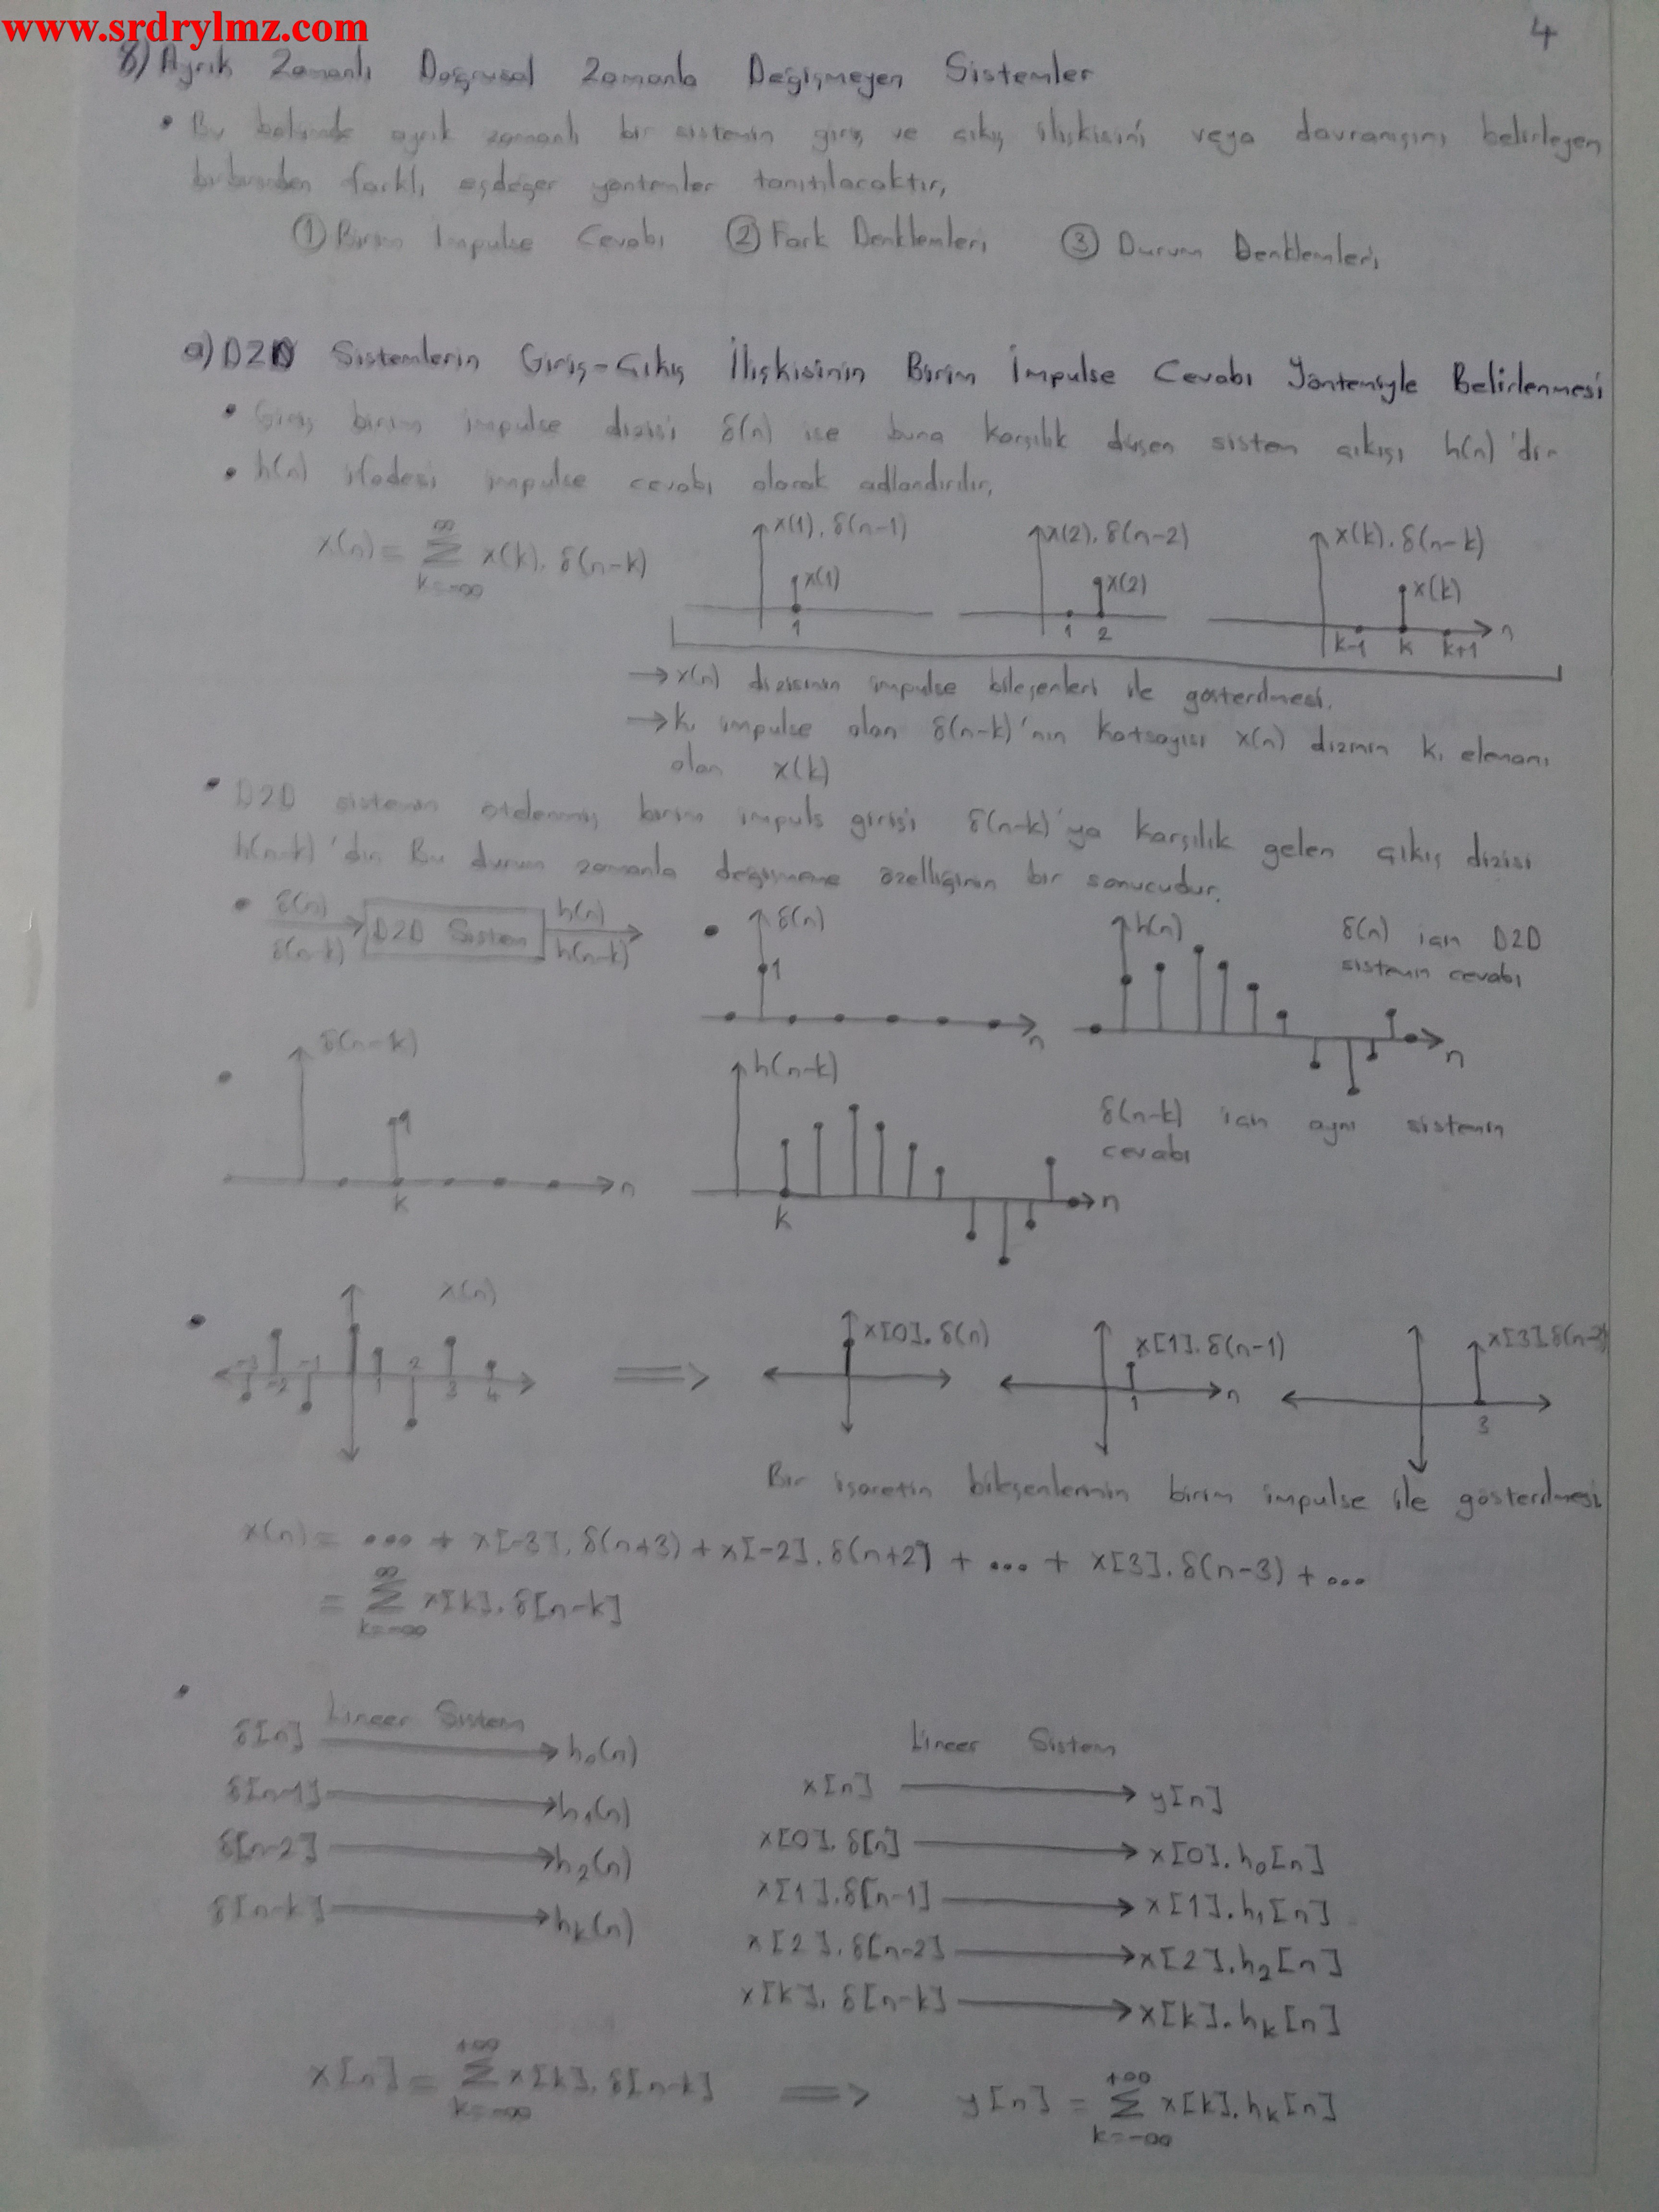 www.srdrylmz.com
4
8) Ayrık Zamanlı Doğrusal Zamanla Değişmeyen Sistemler
• Bu bölümde ayrık zamanlı bir sistemin giriş ve çıkış ilişkisini veya davranışını belirleyen
birbirinden farklı eşdeğer yöntemler tanıtılacaktır.
① Birim Impulse Cevabı ② Fark Denklemleri ③ Durum Denklemleri
a) D2D Sistemlerin Giriş-Çıkış İlişkisinin Birim İmpulse Cevabı Yöntemiyle Belirlenmesi
• Giriş birim impulse dizisi δ(n) ise buna karşılık düşen sistem çıkışı h(n)'dir
• h(n) ifadesi impulse cevabı olarak adlandırılır.
x(n) = ∞ Σ k=-∞ x(k). δ(n-k)
x(1). δ(n-1)
x(1)
1
x(2). δ(n-2)
x(2)
1 2
x(k). δ(n-k)
x(k)
k-1 k k+1 n
→ x(n) dizisinin impulse bileşenleri ile gösterilmesi.
→ k. impulse olan δ(n-k)'nın katsayısı x(n) dizinin k. elemanı
olan x(k)
• D2D sistemin ötelenmiş birim impuls girişi δ(n-k)'ya karşılık gelen çıkış dizisi
h(n-k)'dir. Bu durum zamanla değişmeme özelliğinin bir sonucudur.
• δ(n) δ(n-k) D2D Sistem h(n) h(n-k)
• δ(n)
1
n
h(n)
n
δ(n) için D2D
sistemin cevabı
• δ(n-k)
1
k n
h(n-k)
k n
δ(n-k) için aynı sistemin
cevabı
• x(n)
-3 -2 -1 1 2 3 4
⟹
x[0]. δ(n)
x[1]. δ(n-1)
1 n
x[3]. δ(n-3)
3
Bir işaretin bileşenlerinin birim impulse ile gösterilmesi
x(n) = ... + x[-3]. δ(n+3) + x[-2]. δ(n+2) + ... + x[3]. δ(n-3) + ...
= ∞ Σ k=-∞ x[k]. δ[n-k]
• Lineer Sistem
δ[n] → h₀(n)
δ[n-1] → h₁(n)
δ[n-2] → h₂(n)
δ[n-k] → hₖ(n)
Lineer Sistem
x[n] → y[n]
x[0]. δ[n] → x[0]. h₀[n]
x[1]. δ[n-1] → x[1]. h₁[n]
x[2]. δ[n-2] → x[2]. h₂[n]
x[k]. δ[n-k] → x[k]. hₖ[n]
x[n] = +∞ Σ k=-∞ x[k]. δ[n-k] ⟹ y[n] = +∞ Σ k=-∞ x[k]. hₖ[n]